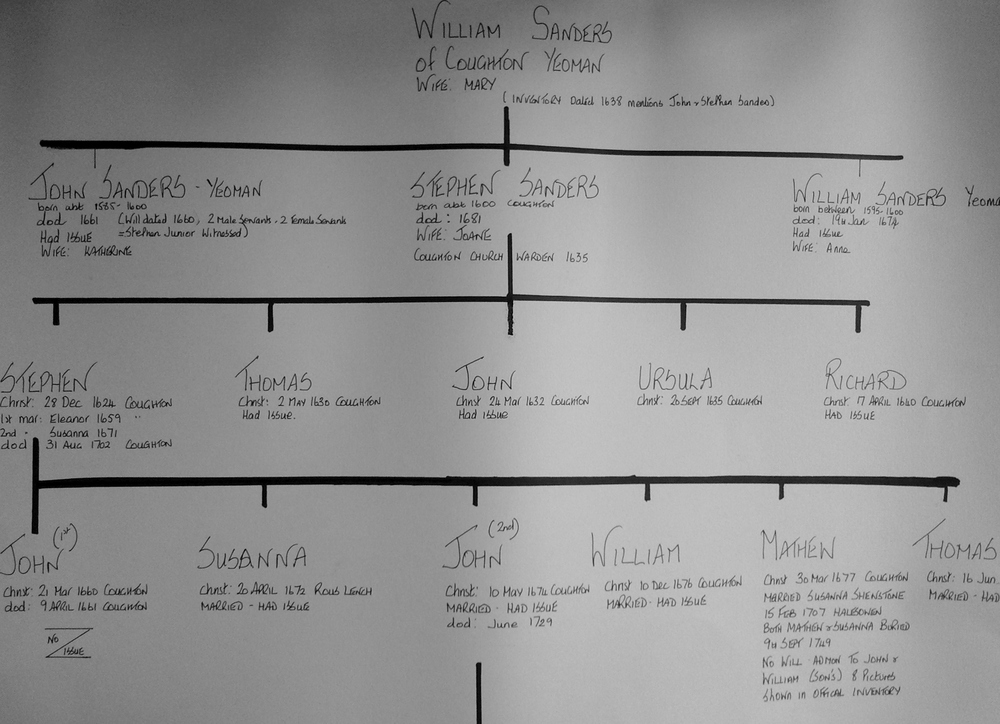 WILLIAM SANDERS
of COUGHTON YEOMAN
WIFE: MARY
(INVENTORY Dated 1638 mentions John & Stephen Sandes)
JOHN SANDERS - YEOMAN
born abt 1585-1600
dod 1661 (Will dated 1660, 2 Male Servants - 2 Female Servants
Had ISSUE =Stephen Junior Witnessed)
WIFE: KATHERINE
STEPHEN SANDERS
born abt 1600 COUGHTON
dod : 1681
WIFE: JOANE
COUGHTON CHURCH WARDEN 1635
WILLIAM SANDERS Yeoma
born between 1595-1600
dod: 19th Jan 1674
Had issue
WIFE: Anne
STEPHEN
Christ: 28 Dec 1624 COUGHTON
1st mar: Eleanor 1659 "
2nd - Susanna 1671
dod 31 AUG 1702 COUGHTON
THOMAS
Christ: 2 MAY 1630 COUGHTON
Had Issue.
JOHN
Christ 24 Mar 1632 COUGHTON
Had issue
URSULA
Christ: 20 SEPT 1635 COUGHTON
RICHARD
Christ 17 APRIL 1640 COUGHTON
HAD ISSUE
JOHN (1st)
Christ: 21 Mar 1660 COUGHTON
dod: 9 APRIL 1661 COUGHTON
NO ISSUE
SUSANNA
Christ: 20 APRIL 1672 ROUS LENCH
MARRIED - HAD ISSUE
JOHN (2nd)
Christ: 10 MAY 1674 COUGHTON
MARRIED - HAD ISSUE
dod: June 1729
WILLIAM
Christ 10 Dec 1676 COUGHTON
MARRIED - HAD ISSUE
MATHEW
Christ 30 Mar 1677 COUGHTON
MARRIED SUSANNA SHENSTONE
15 FEB 1707 HALESOWEN
BOTH MATHEW & SUSANNA BURIED
9th SEPT 1749
NO WILL ADMON TO JOHN &
WILLIAM (SON'S) 8 Pictures
Shown in OFFICAL INVENTORY
THOMAS
Christ: 16 Jun
MARRIED - HAD